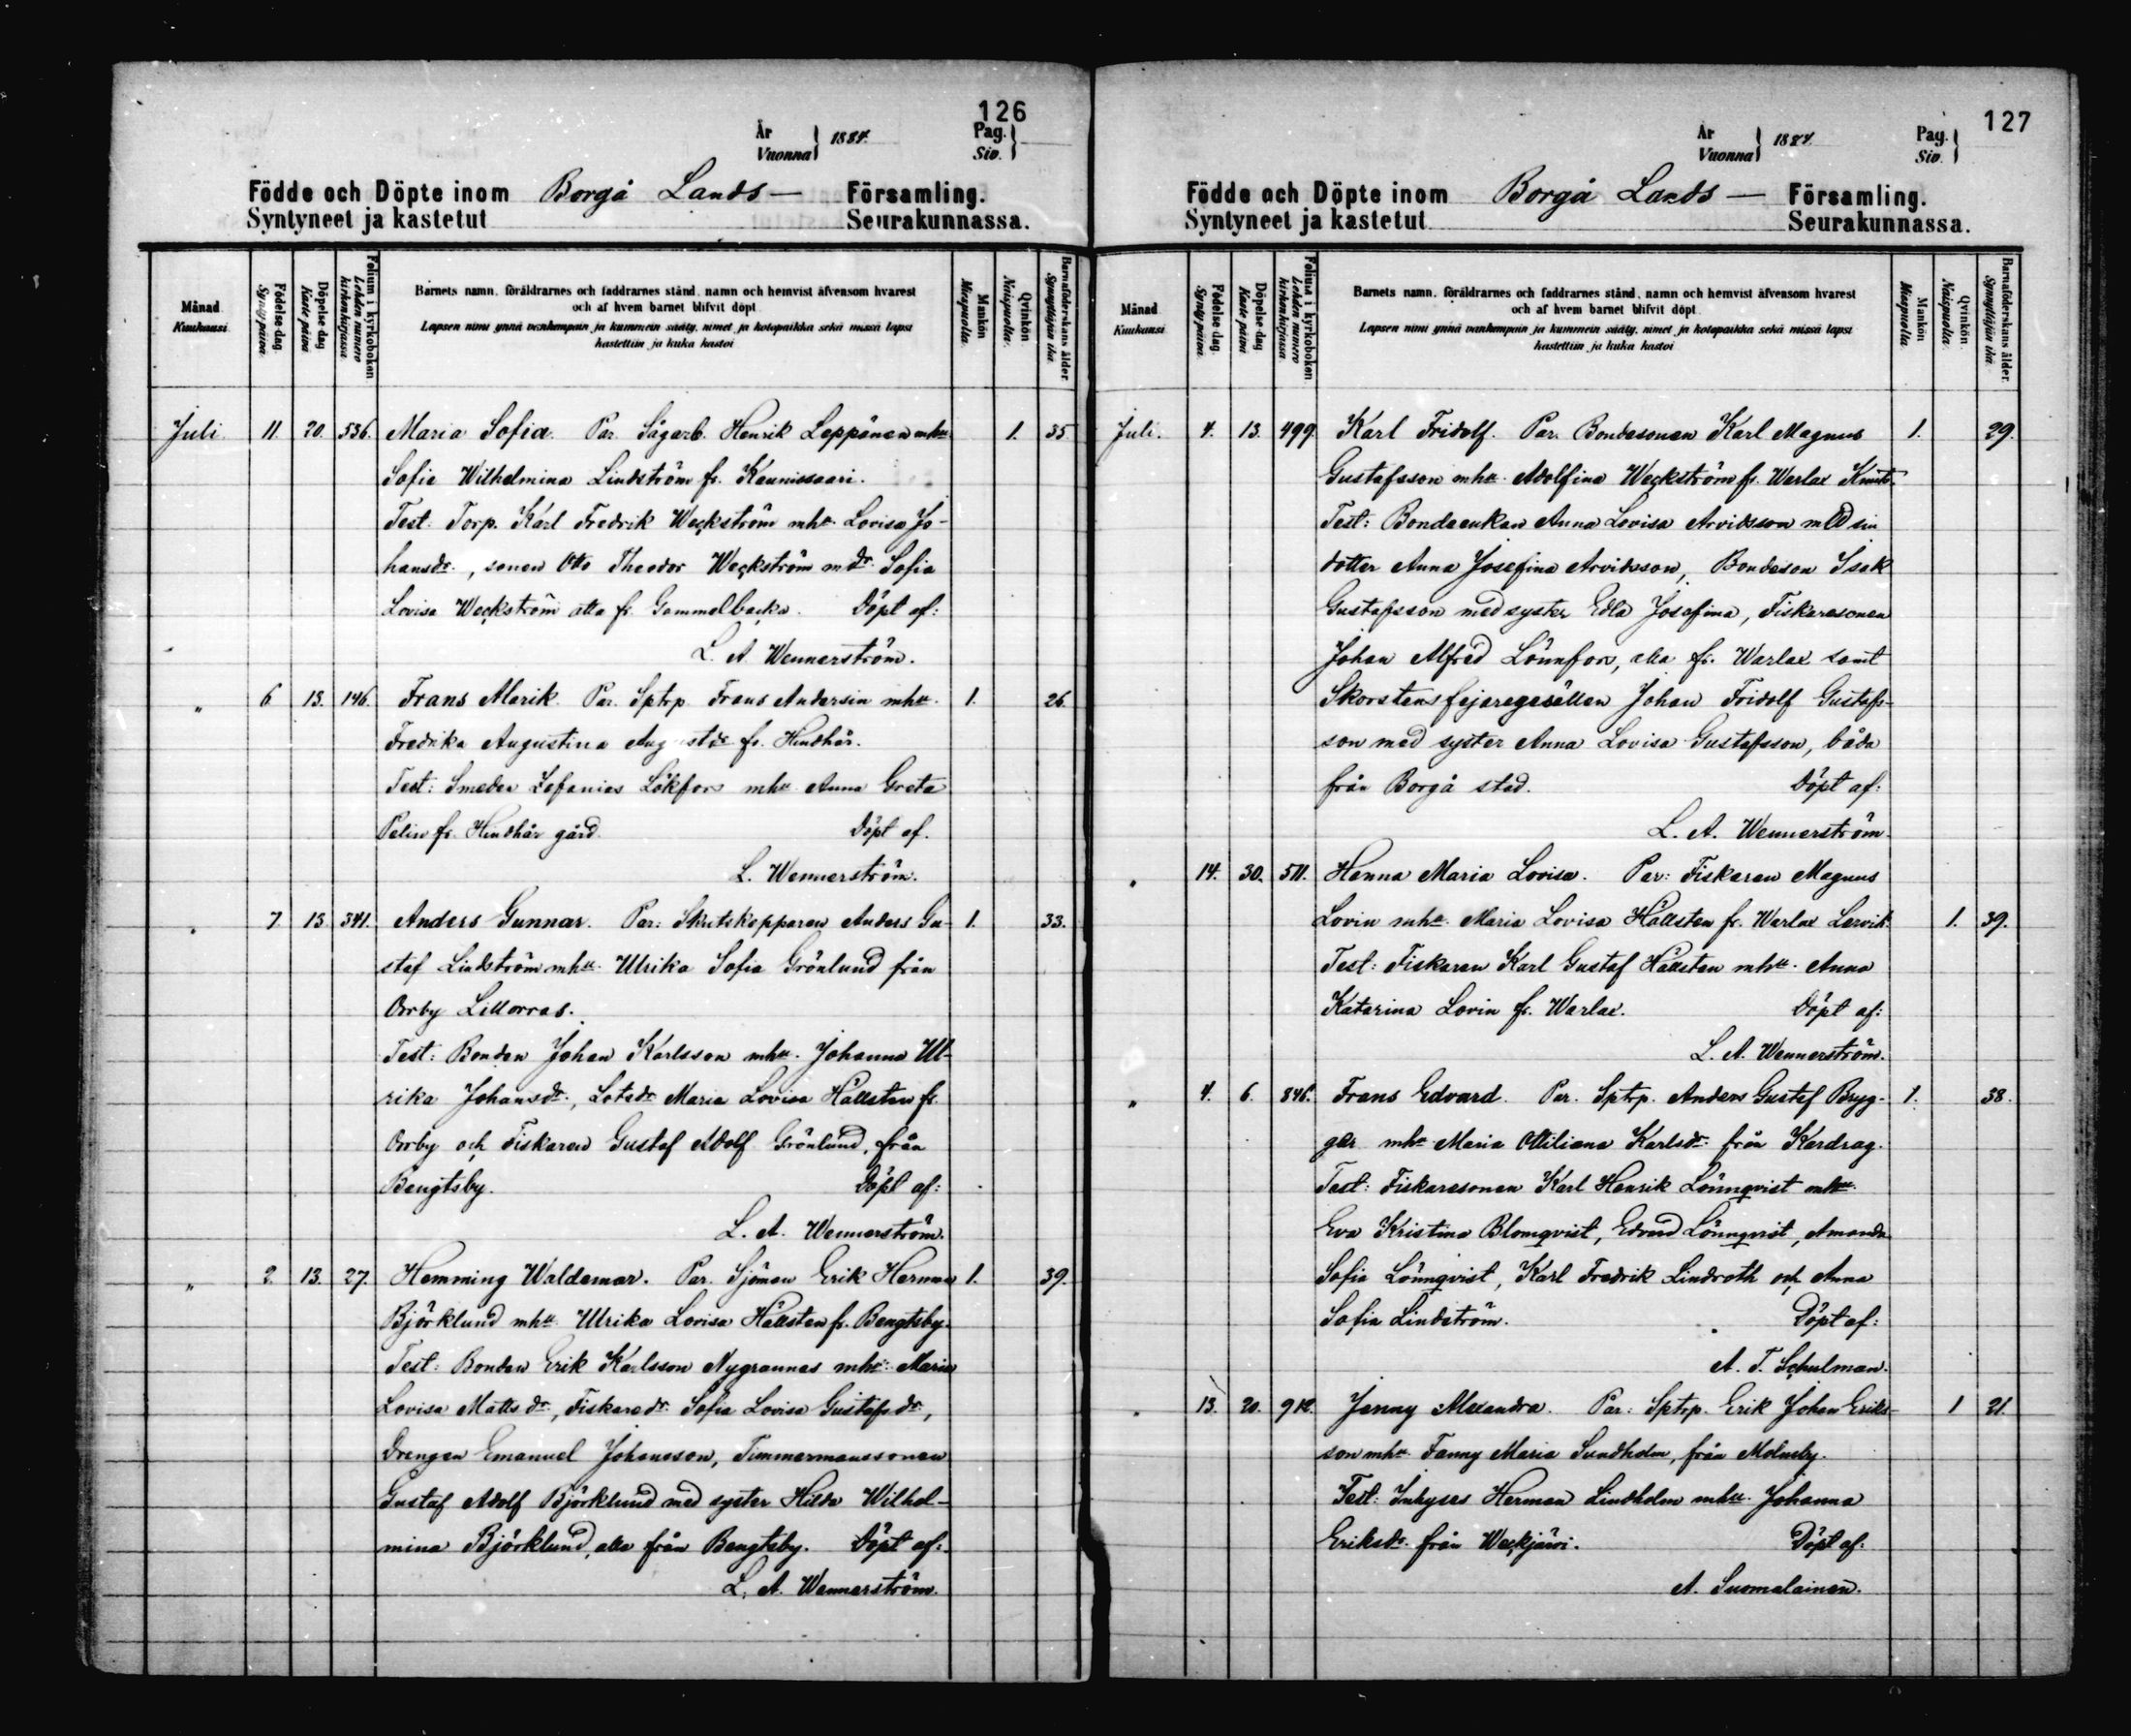 126
År
Vuonna } 1884. Pag.
Siv. }
Födde och Döpte inom Borgå Lands— Församling.
Syntyneet ja kastetut Seurakunnassa.
Månad
Kuukausi.
Födelse-dag.
Syntypäivä.
Döpelse-dag
Kaste päivä
Folium i kyrkoboken
Lehden numero
kirkonkirjassa
Barnets namn, föräldrarnes och faddrarnes stånd, namn och hemvist äfvensom hvarest
och af hvem barnet blifvit döpt.
Lapsen nimi ynnä vanhempain ja kummein sääty, nimet ja kotopaikka sekä missä lapsi
kastettiin ja kuka kastoi
Mankön
Miespuolia.
Qvinkön
Naispuolia.
Barnaföderskans ålder.
Synnyttäjän ikä.
Juli 11. 20. 536. Maria Sofia. Par. Sågarb. Henrik Leppänen mhu 1. 35
Sofia Wilhelmina Lindström fr. Kaunissaari.
Test: Torp. Karl Fredrik Weckström mhu. Lovisa Jo-
hansdr., sonen Otto Theodor Weckström m dr. Sofia
Lovisa Weckström alla fr. Gammelbacka. Döpt af:
L. A. Wennerström.
" 6 13. 146. Frans Alarik. Par. Sptrp. Frans Andersin mhu. 1. 26.
Fredrika Augustina Augustdr fr. Hindhår.
Test: Smeden Sefanias Lökfors mhu Anna Greta
Pelin fr. Hindhår gård. Döpt af.
L. Wennerström.
" 7 13 341. Anders Gunnar. Par: Skutskepparen Anders Gu- 1. 33.
staf Lindström mhu. Ulrika Sofia Grönlund från
Orrby Lillorras.
Test: Bonden Johan Karlsson mhu. Johanna Ul-
rika Johansdr., Lotsdr Maria Lovisa Hällsten fr.
Orrby och Fiskaren Gustaf Adolf Grönlund, från
Bengtsby. Döpt af:
L. A. Wennerström.
" 2. 13. 27. Hemming Waldemar. Par. Sjöman Erik Herman 1. 39.
Björklund mhu. Ulrika Lovisa Hällsten fr. Bengtsby.
Test: Bonden Erik Karlsson Nygrannas mhu: Maria
Lovisa Mattsdr., Fiskaredr. Sofia Lovisa Gustafsdr,
Drengen Emanuel Johansson, Timmermanssonen
Gustaf Adolf Björklund med syster Hilda Wilhel-
mina Björklund, alla från Bengtsby. Döpt af:
L. A. Wennerström.
127
År
Vuonna } 1884. Pag.
Siv. }
Födde och Döpte inom Borgå Lands— Församling.
Syntyneet ja kastetut Seurakunnassa.
Månad
Kuukausi
Födelse-dag.
Syntypäivä.
Döpelse-dag
Kaste päivä
Folium i kyrkoboken
Lehden numero
kirkonkirjassa.
Barnets namn, föräldrarnes och faddrarnes stånd, namn och hemvist äfvensom hvarest
och af hvem barnet blifvit döpt.
Lapsen nimi ynnä vanhempain ja kummein sääty, nimet ja kotopaikka sekä missä lapsi
kastettiin ja kuka kastoi
Mankön
Miespuolia.
Qvinkön
Naispuolia.
Barnaföderskans ålder.
Synnyttäjän ikä.
Juli. 4. 13. 499. Karl Fridolf. Par. Bondesonen Karl Magnus 1. 29.
Gustafsson mhu. Adolfina Weckström fr. Warlax Knuts.
Test: Bondeenkan Anna Lovisa Arvidsson med sin
dotter Anna Josefina Arvidsson, Bondeson Isak
Gustafsson med syster Edla Josefina, Fiskaresonen
Johan Alfred Lönnfors, alla fr. Warlax samt
Skorstensfejaregesällen Johan Fridolf Gustafs-
son med syster Anna Lovisa Gustafsson, båda
från Borgå stad. Döpt af:
L. A. Wennerström.
" 14. 30. 511. Hanna Maria Lovisa. Par: Fiskaren Magnus
Lovin mhu. Maria Lovisa Hällsten fr. Warlax Lervik. 1. 39.
Test: Fiskaren Karl Gustaf Hällsten mhu. Anna
Katarina Lovin fr. Warlax. Döpt af:
L. A. Wennerström.
" 4. 6. 846. Frans Edvard. Par. Sptrp. Anders Gustaf Bryg- 1. 38.
gar mhu Maria Ottiliana Karlsdr. från Kardrag.
Test: Fiskaresonen Karl Henrik Lönnqvist mhu.
Eva Kristina Blomqvist, Edvard Lönnqvist, Amanda
Sofia Lönnqvist, Karl Fredrik Lindroth och Anna
Sofia Lindström. Döpt af:
A. T. Schulman.
" 13. 20. 912. Jenny Alexandra. Par: Sptrp. Erik Johan Eriks- 1 21.
son mhu. Fanny Maria Sundholm, från Molnby.
Test: Inhyses Herman Lindholm mhu. Johanna
Eriksdr. från Weckjärvi. Döpt af:
A. Suomalainen.